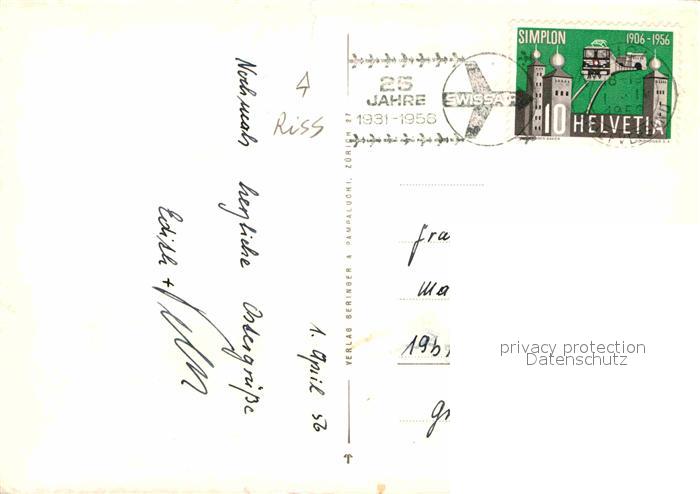 SIMPLON 1906-1956
10 HELVETIA
25
JAHRE
1931-1956
SWISSAIR
Riss
Nochmals herzliche Ostergrüße
Edith +
1. April 56
VERLAG BERINGER & PAMPALUCHI, ZÜRICH 27
Fra
Ma
195
Gr
privacy protection
Datenschutz